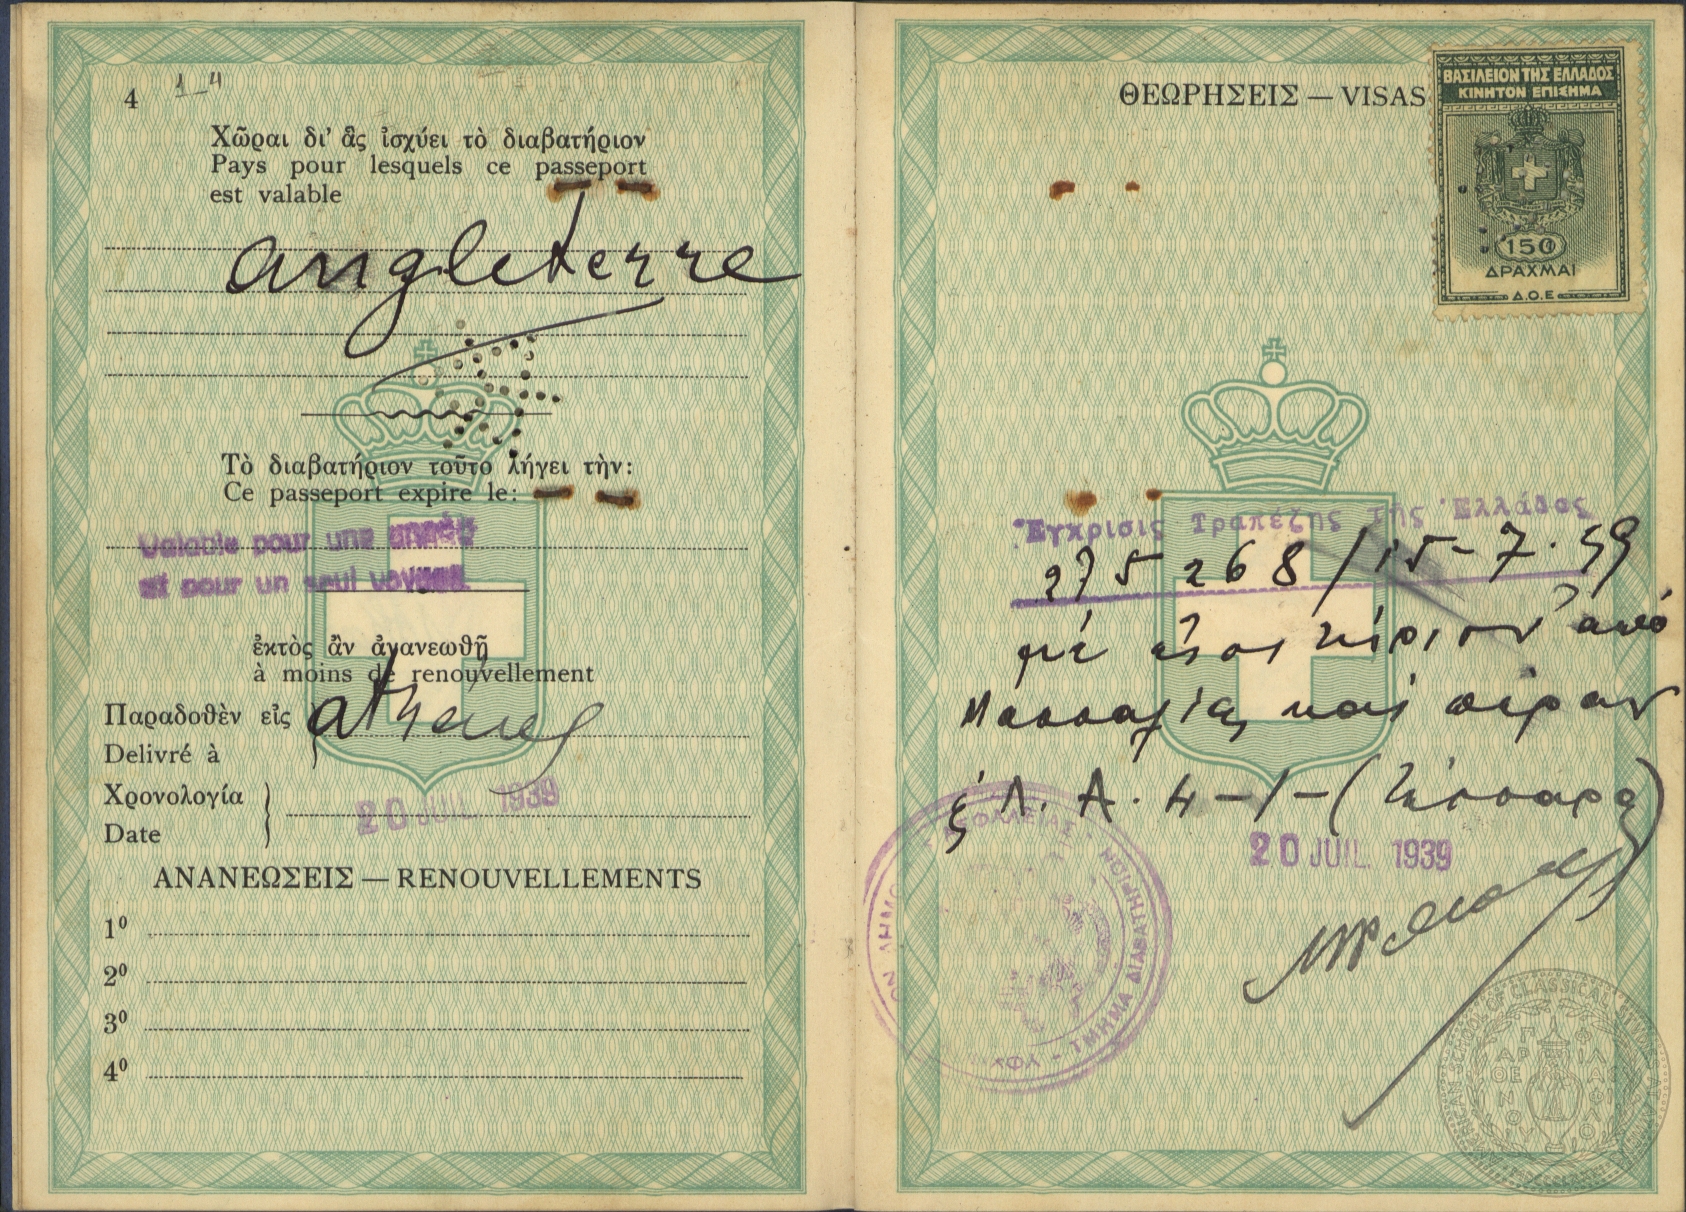 4
1 4
Χῶραι δι' ἃς ἰσχύει τὸ διαβατήριον
Pays pour lesquels ce passeport
est valable
angleterre
Τὸ διαβατήριον τοῦτο λήγει τὴν:
Ce passeport expire le:
Valable pour une année
et pour un seul voyage
ἐκτὸς ἂν ἀνανεωθῇ
à moins de renouvellement
Παραδοθὲν εἰς
athenes
Delivré à
Χρονολογία
Date
20 JUIL 1939
ΑΝΑΝΕΩΣΕΙΣ — RENOUVELLEMENTS
1⁰
2⁰
3⁰
4⁰
ΘΕΩΡΗΣΕΙΣ — VISAS
ΒΑΣΙΛΕΙΟΝ ΤΗΣ ΕΛΛΑΔΟΣ
ΚΙΝΗΤΟΝ ΕΠΙΣΗΜΑ
150
ΔΡΑΧΜΑΙ
Δ.Ο.Ε
Ἔγκρισις Τραπέζης τῆς Ἑλλάδος
275268/15-7.39
μὲ εἰσιτήριον ἀπὸ
Μασσαλίας καὶ πέραν
ἐξ Λ. Α. 4-/-(τέσσαρα)
20 JUIL 1939
ΑΣΦΑΛΕΙΑΣ
ΤΜΗΜΑ ΔΙΑΒΑΤΗΡΙΩΝ
AMERICAN SCHOOL OF CLASSICAL STUDIES AT ATHENS